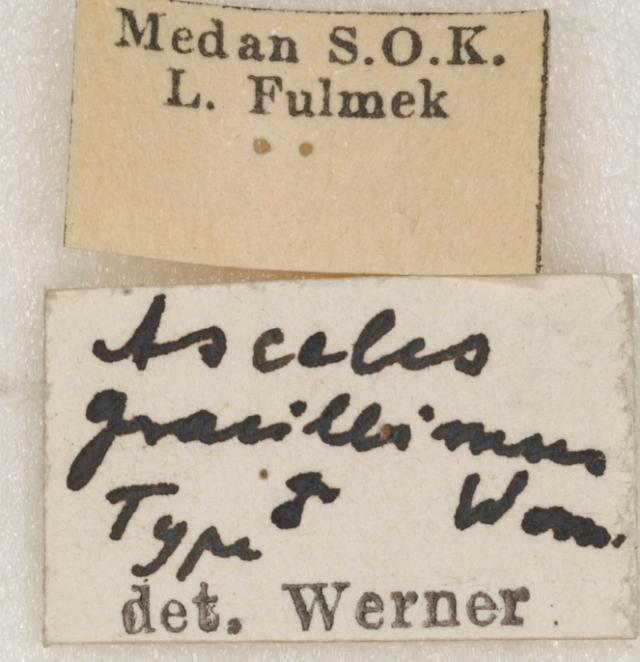 Medan S.O.K.
L. Fulmek
Asceles
gracillimus
Type ♂ Wern.
det. Werner